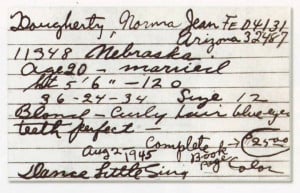 Dougherty, Norma Jean Fe 04131
Arizona 32487
11348 Nebraska
Age 20 - married
Ht 5'6" - 120
36-24-34 Size 12
Blond - Curly hair blue eyes
teeth perfect -
Aug 2, 1945 Complete $25.00
Book
pg Color
Dance Little Sing